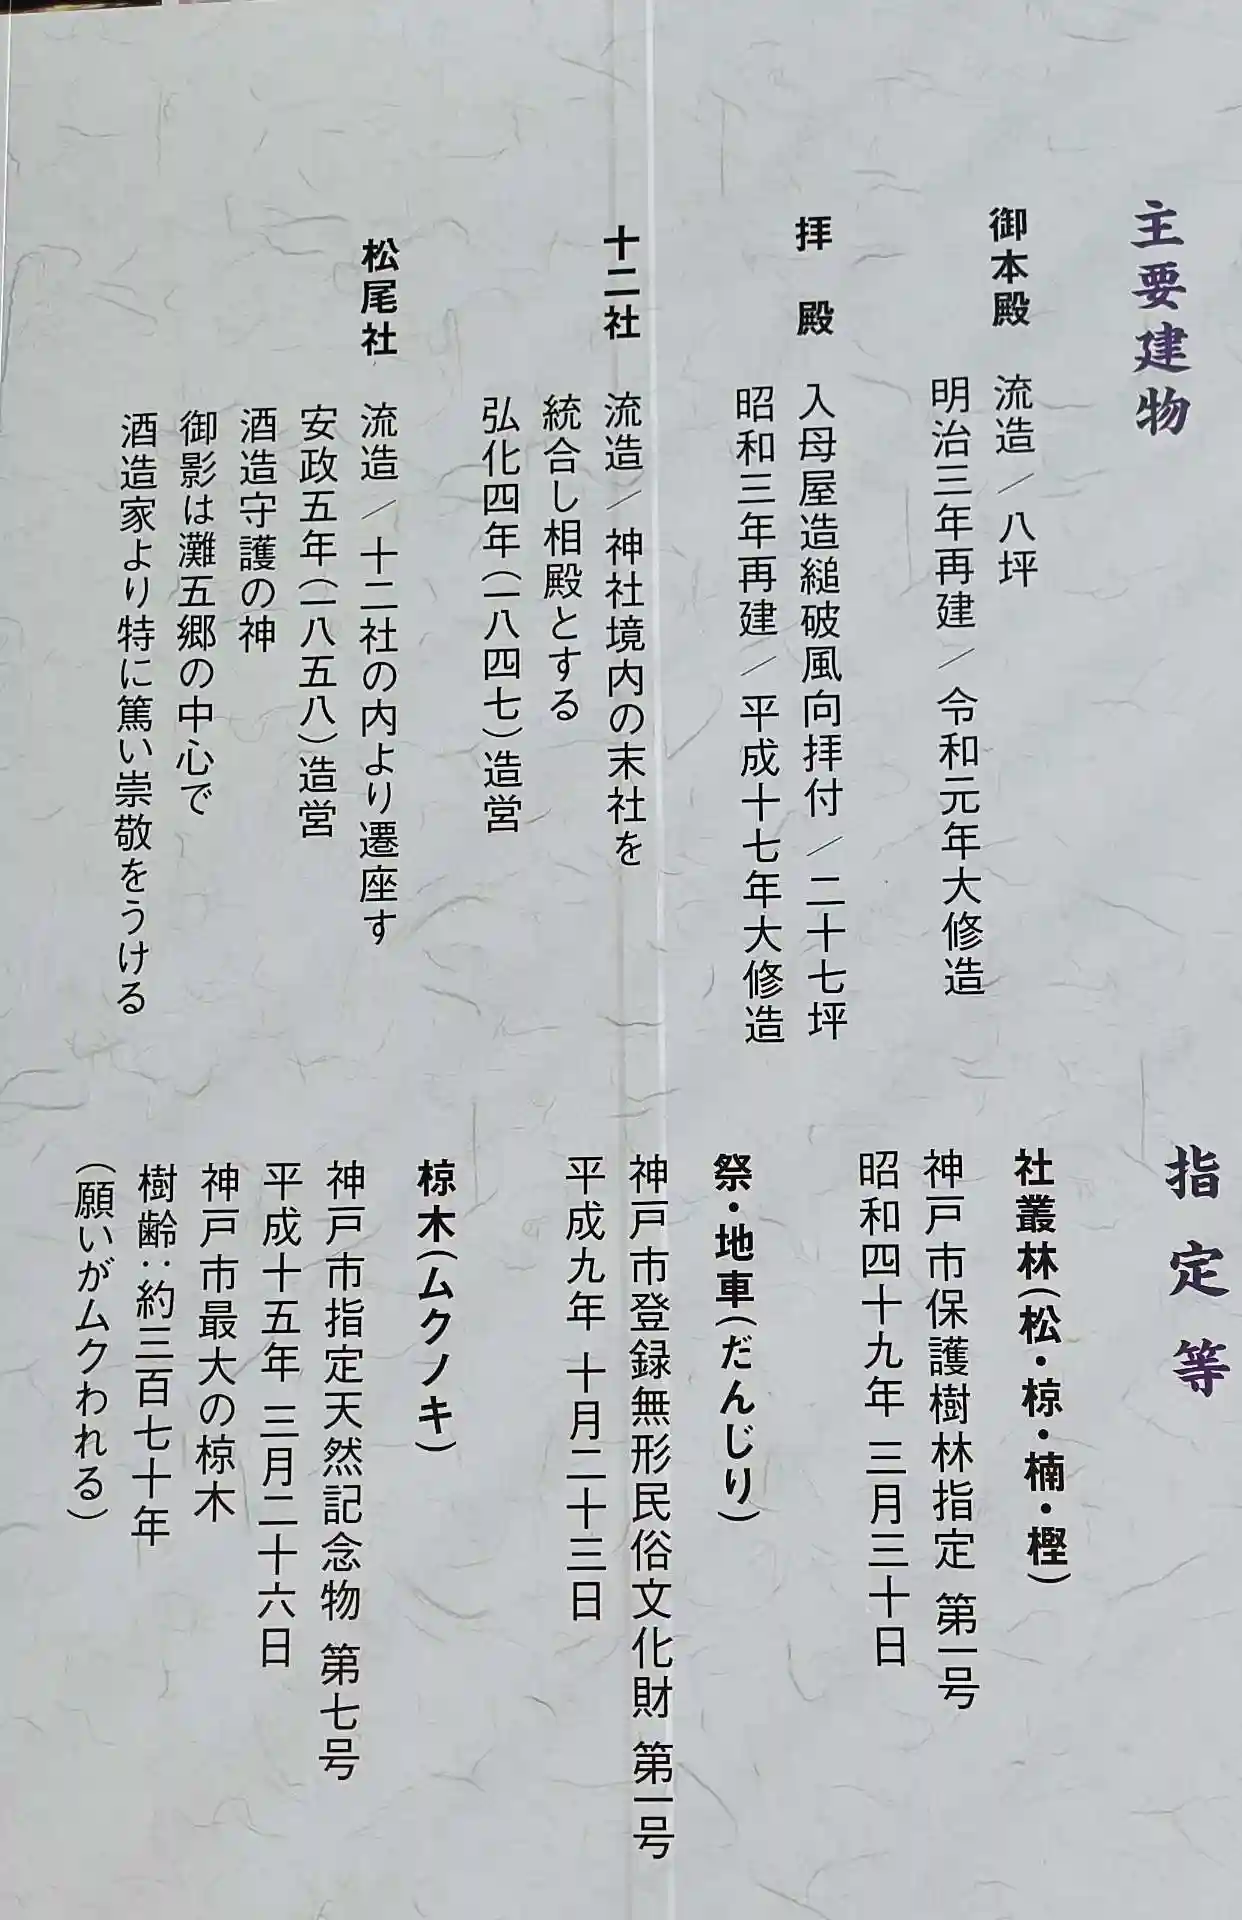 主要建物
御本殿 流造／八坪
明治三年再建／令和元年大修造
拝殿 入母屋造縋破風向拝付／二十七坪
昭和三年再建／平成十七年大修造
十二社 流造／神社境内の末社を
統合し相殿とする
弘化四年(一八四七)造営
松尾社 流造／十二社の内より遷座す
安政五年(一八五八)造営
酒造守護の神
御影は灘五郷の中心で
酒造家より特に篤い崇敬をうける
指定等
社叢林(松・椋・楠・樫)
神戸市保護樹林指定 第一号
昭和四十九年 三月三十日
祭・地車(だんじり)
神戸市登録無形民俗文化財 第一号
平成九年 十月二十三日
椋木(ムクノキ)
神戸市指定天然記念物 第七号
平成十五年 三月二十六日
神戸市最大の椋木
樹齢：約三百七十年
(願いがムクわれる)